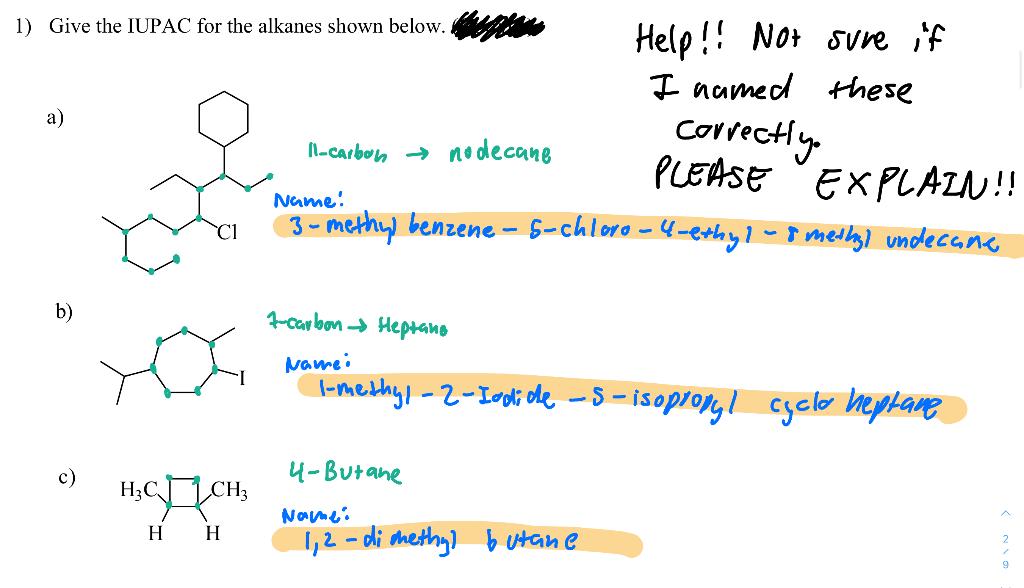 1) Give the IUPAC for the alkanes shown below.
Help!! Not sure if
I named these
correctly.
PLEASE EXPLAIN!!
a)
11-carbon → nodecane
Name:
3-methyl benzene-5-chloro-4-ethyl-8 methyl undecane
Cl
b)
7-carbon → Heptane
Name:
1-methyl-2-Iodide-5-isopropyl cyclo heptane
I
c)
4-Butane
H₃C CH₃
H H
Name:
1,2-dimethyl butane
2
/
9